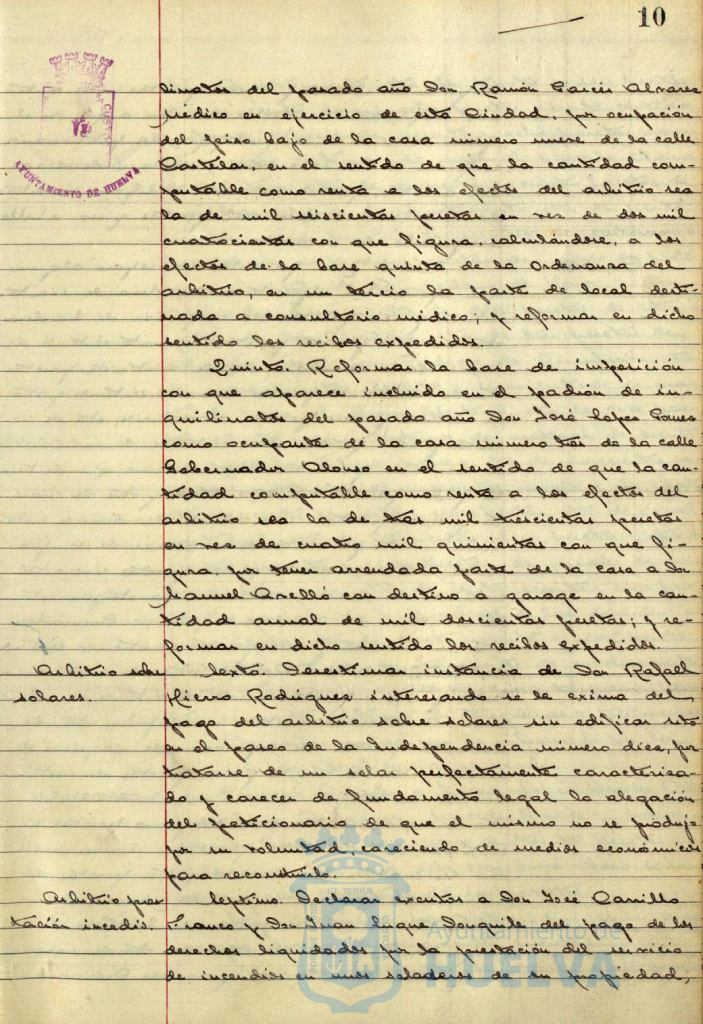 10
AYUNTAMIENTO DE HUELVA
linatos del pasado año Don Ramón Garcés Alvarez
Médico en ejercicio de esta Ciudad, por ocupación
del piso bajo de la casa número nueve de la calle
Castelar, en el sentido de que la cantidad com-
putable como renta a los efectos del arbitrio sea
la de mil seiscientas pesetas en vez de dos mil
cuatrocientas con que figura, calculándose, a los
efectos de la base quinta de la Ordenanza del
arbitrio, en un tercio la parte de local desti-
nada a consultorio médico; y reformar en dicho
sentido los recibos expedidos.
Quinto. Reformar la base de imposición
con que aparece incluido en el padrón de in-
quilinatos del pasado año Don José Lopez Gomez
como ocupante de la casa número tres de la calle
Gobernador Alonso en el sentido de que la can-
tidad computable como renta a los efectos del
arbitrio sea la de tres mil trescientas pesetas
en vez de cuatro mil quinientas con que fi-
gura, por tener arrendada parte de la casa a Don
Manuel con destino a garage en la can-
tidad anual de mil doscientas pesetas; y re-
formar en dicho sentido los recibos expedidos.
Arbitrio sobre
solares.
Sexto. Desestimar instancia de Don Rafael
Hierro Rodriguez interesando se le exima del
pago del arbitrio sobre solares sin edificar sito
en el paseo de la Independencia número diez, por
tratarse de un solar perfectamente caracteriza-
do y carecer de fundamento legal la alegación
del peticionario de que el mismo no se produjo
por su voluntad, careciendo de medios económicos
para reconstruirlo.
Arbitrio pres
tación incedis.
Septimo. Declarar exentos a Don José Carrillo
Franco y Don Juan Luque del pago de los
derechos liquidados por la prestación del servicio
de incendios en unos saladeros de su propiedad,
Ayuntamiento de
HUELVA